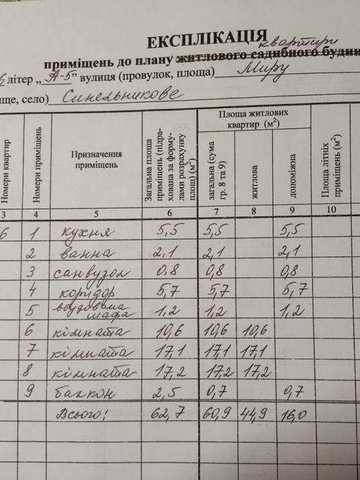 ЕКСПЛІКАЦІЯ
квартири
приміщень до плану житлового садибного
літер „А-5” вулиця (провулок, площа) Миру
ище, село) Синельникове
Номери квартир
Номери приміщень
Призначення приміщень
Загальна площа приміщень (підрахована за формулами розрахунку площ) (м²)
Площа житлових квартир (м²)
загальна (сума гр. 8 та 9)
житлова
допоміжна
Площа літніх приміщень (м²)
3 4 5 6 7 8 9 10
6 1 кухня 5,5 5,5 5,5
2 ванна 2,1 2,1 2,1
3 санвузол 0,8 0,8 0,8
4 коридор 5,7 5,7 5,7
5 вбудована шафа 1,2 1,2 1,2
6 кімната 10,6 10,6 10,6
7 кімната 17,1 17,1 17,1
8 кімната 17,2 17,2 17,2
9 балкон 2,5 0,7 0,7
Всього: 62,7 60,9 44,9 16,0